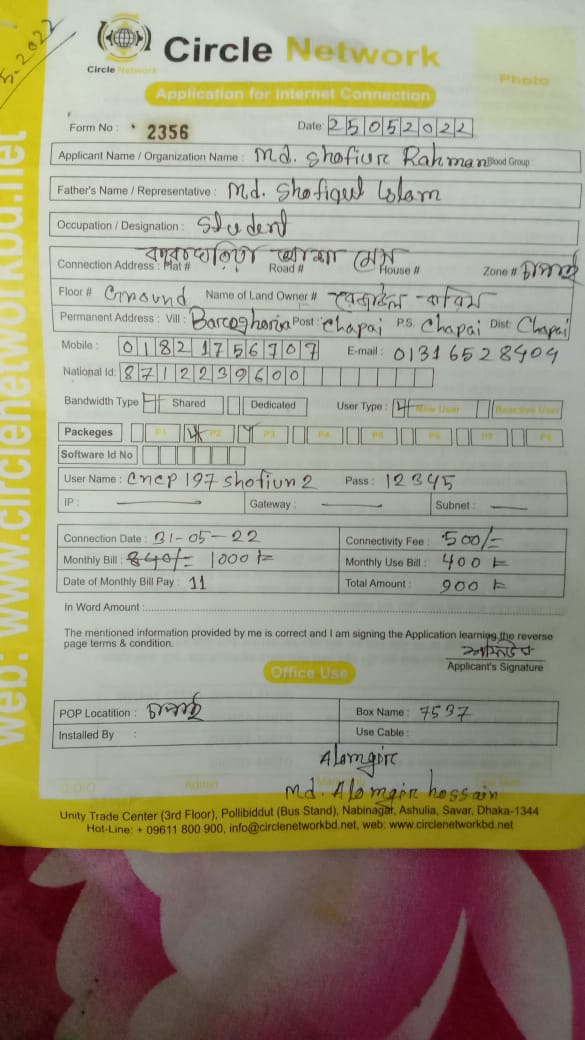 5-2022
Circle Network
Circle Network
Photo
Application for Internet Connection
Form No : 2356 Date: 25052022
Applicant Name / Organization Name : Md. Shofiur Rahman Blood Group:
Father's Name / Representative : Md. Shofiqul Islam
Occupation / Designation : Student
Connection Address : Flat # Road # মেস House # Zone # চাপাই
Floor # Ground Name of Land Owner #
Permanent Address : Vill : Baroghoria Post : Chapai PS. Chapai Dist: Chapai
Mobile : 01821756707 E-mail : 01316528404
National Id: 8712239600
Bandwidth Type Shared Dedicated User Type : New User Reactive User
Packeges P1 P2 P3 P4 P5 P6 P7 P8
Software Id No
User Name : cncp197shofiun2 Pass : 12345
IP : Gateway : Subnet :
Connection Date : 31-05-22 Connectivity Fee : 500/=
Monthly Bill : 840/= 1000 Monthly Use Bill : 400
Date of Monthly Bill Pay : 11 Total Amount : 900
In Word Amount :
The mentioned information provided by me is correct and I am signing the Application learning the reverse
page terms & condition.
Applicant's Signature
Office Use
POP Locatition : চাপাই Box Name : 7537
Installed By : Use Cable :
Alomgir
Md. Alomgir hossain
Admin
Unity Trade Center (3rd Floor), Pollibiddut (Bus Stand), Nabinagar, Ashulia, Savar, Dhaka-1344
Hot-Line: + 09611 800 900, info@circlenetworkbd.net, web: www.circlenetworkbd.net
web: www.circlenetworkbd.net